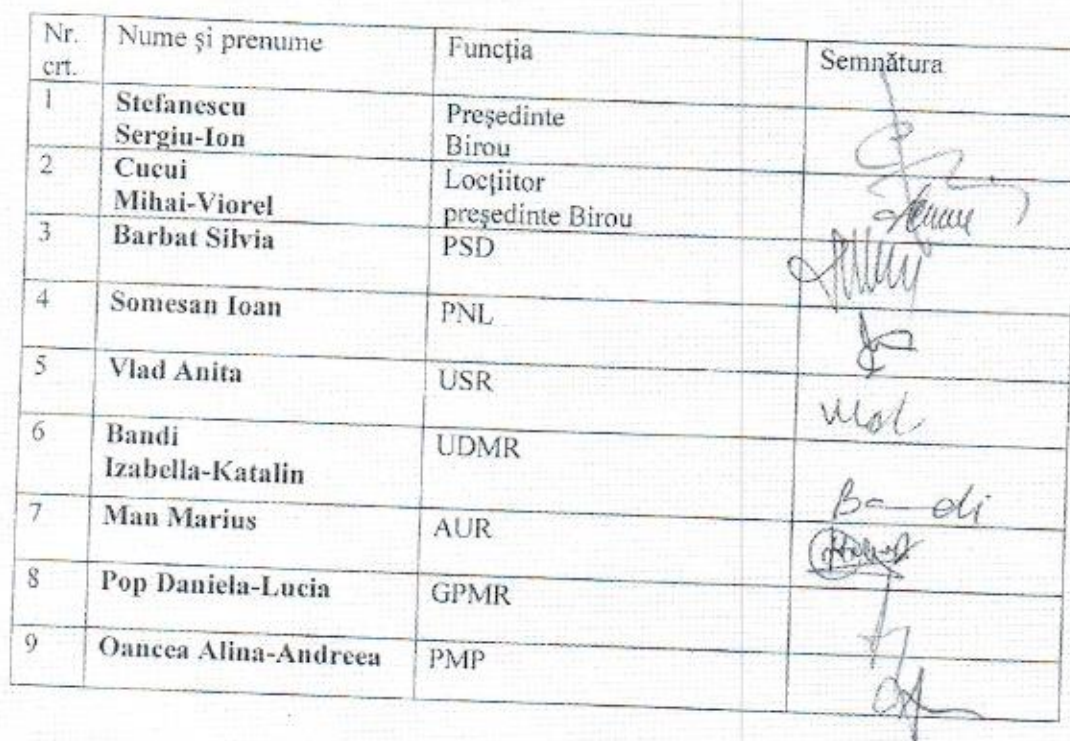 Nr. crt. Nume și prenume Funcția Semnătura
1 Stefanescu Sergiu-Ion Președinte Birou
2 Cucui Mihai-Viorel Locțiitor președinte Birou
3 Barbat Silvia PSD
4 Somesan Ioan PNL
5 Vlad Anita USR
6 Bandi Izabella-Katalin UDMR Bandi
7 Man Marius AUR
8 Pop Daniela-Lucia GPMR
9 Oancea Alina-Andreea PMP